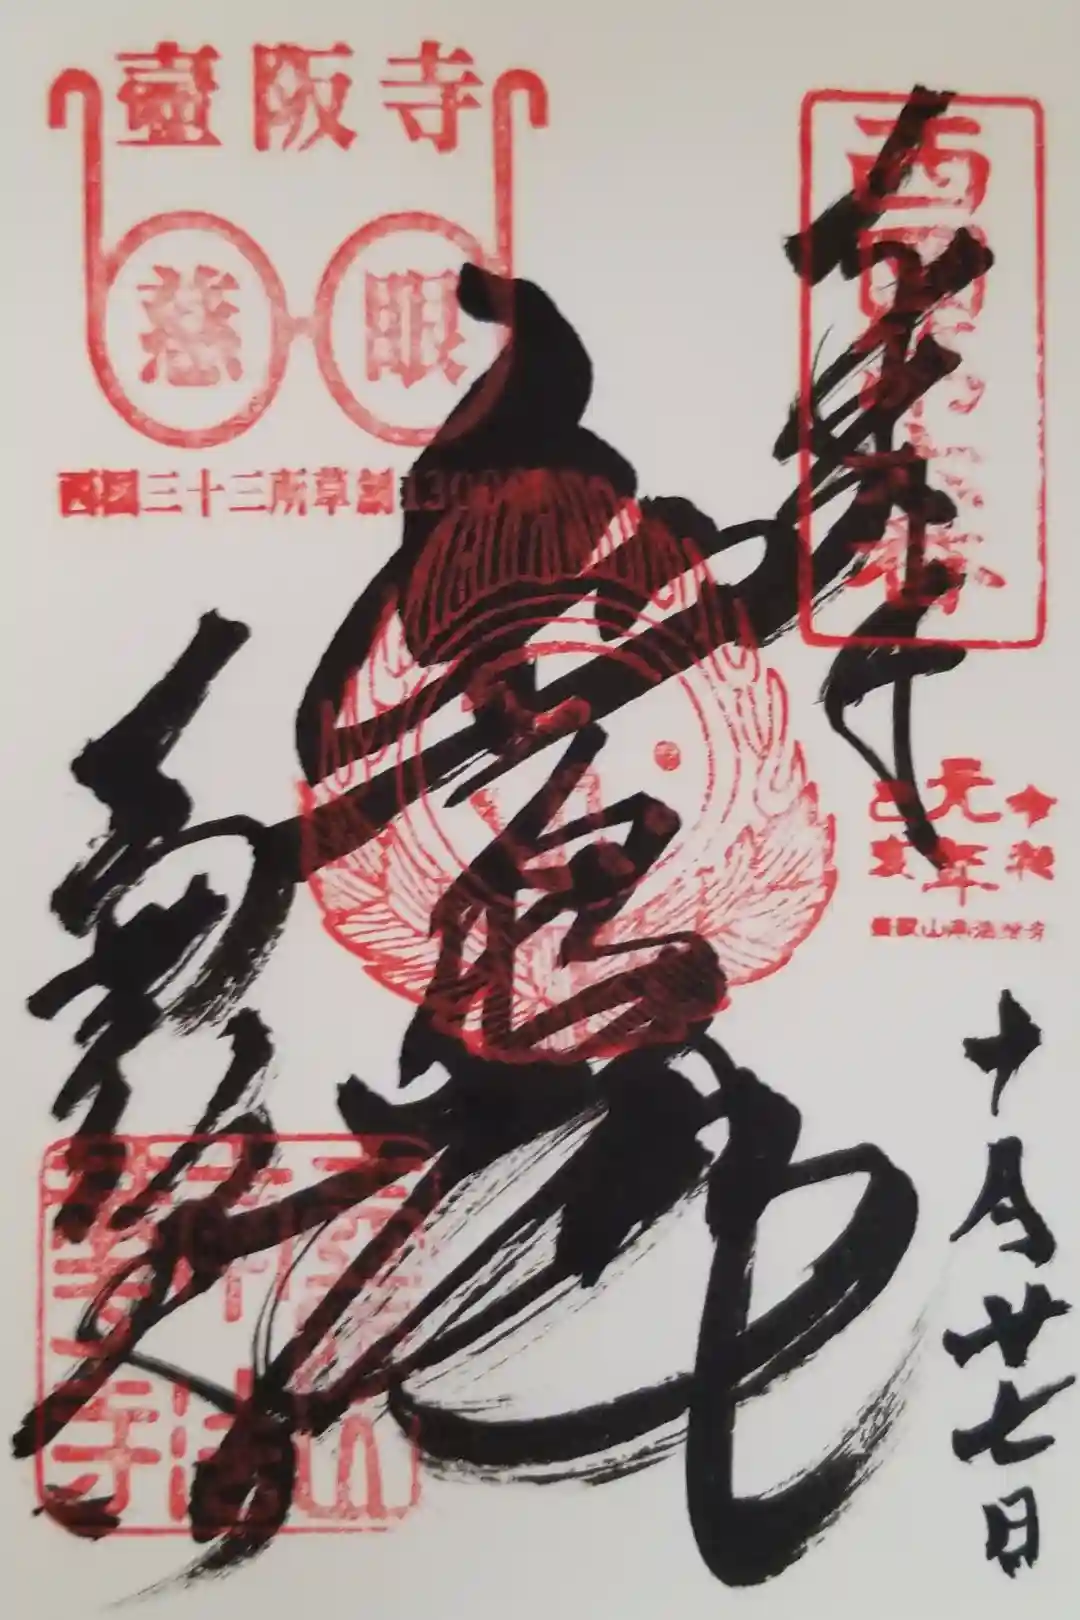 壷阪寺
慈眼
西國三十三所草創1300
西國第六番
奉拝
令和
元年
己亥
壷阪山南法華寺
普照殿
南法華寺
十月廿七日